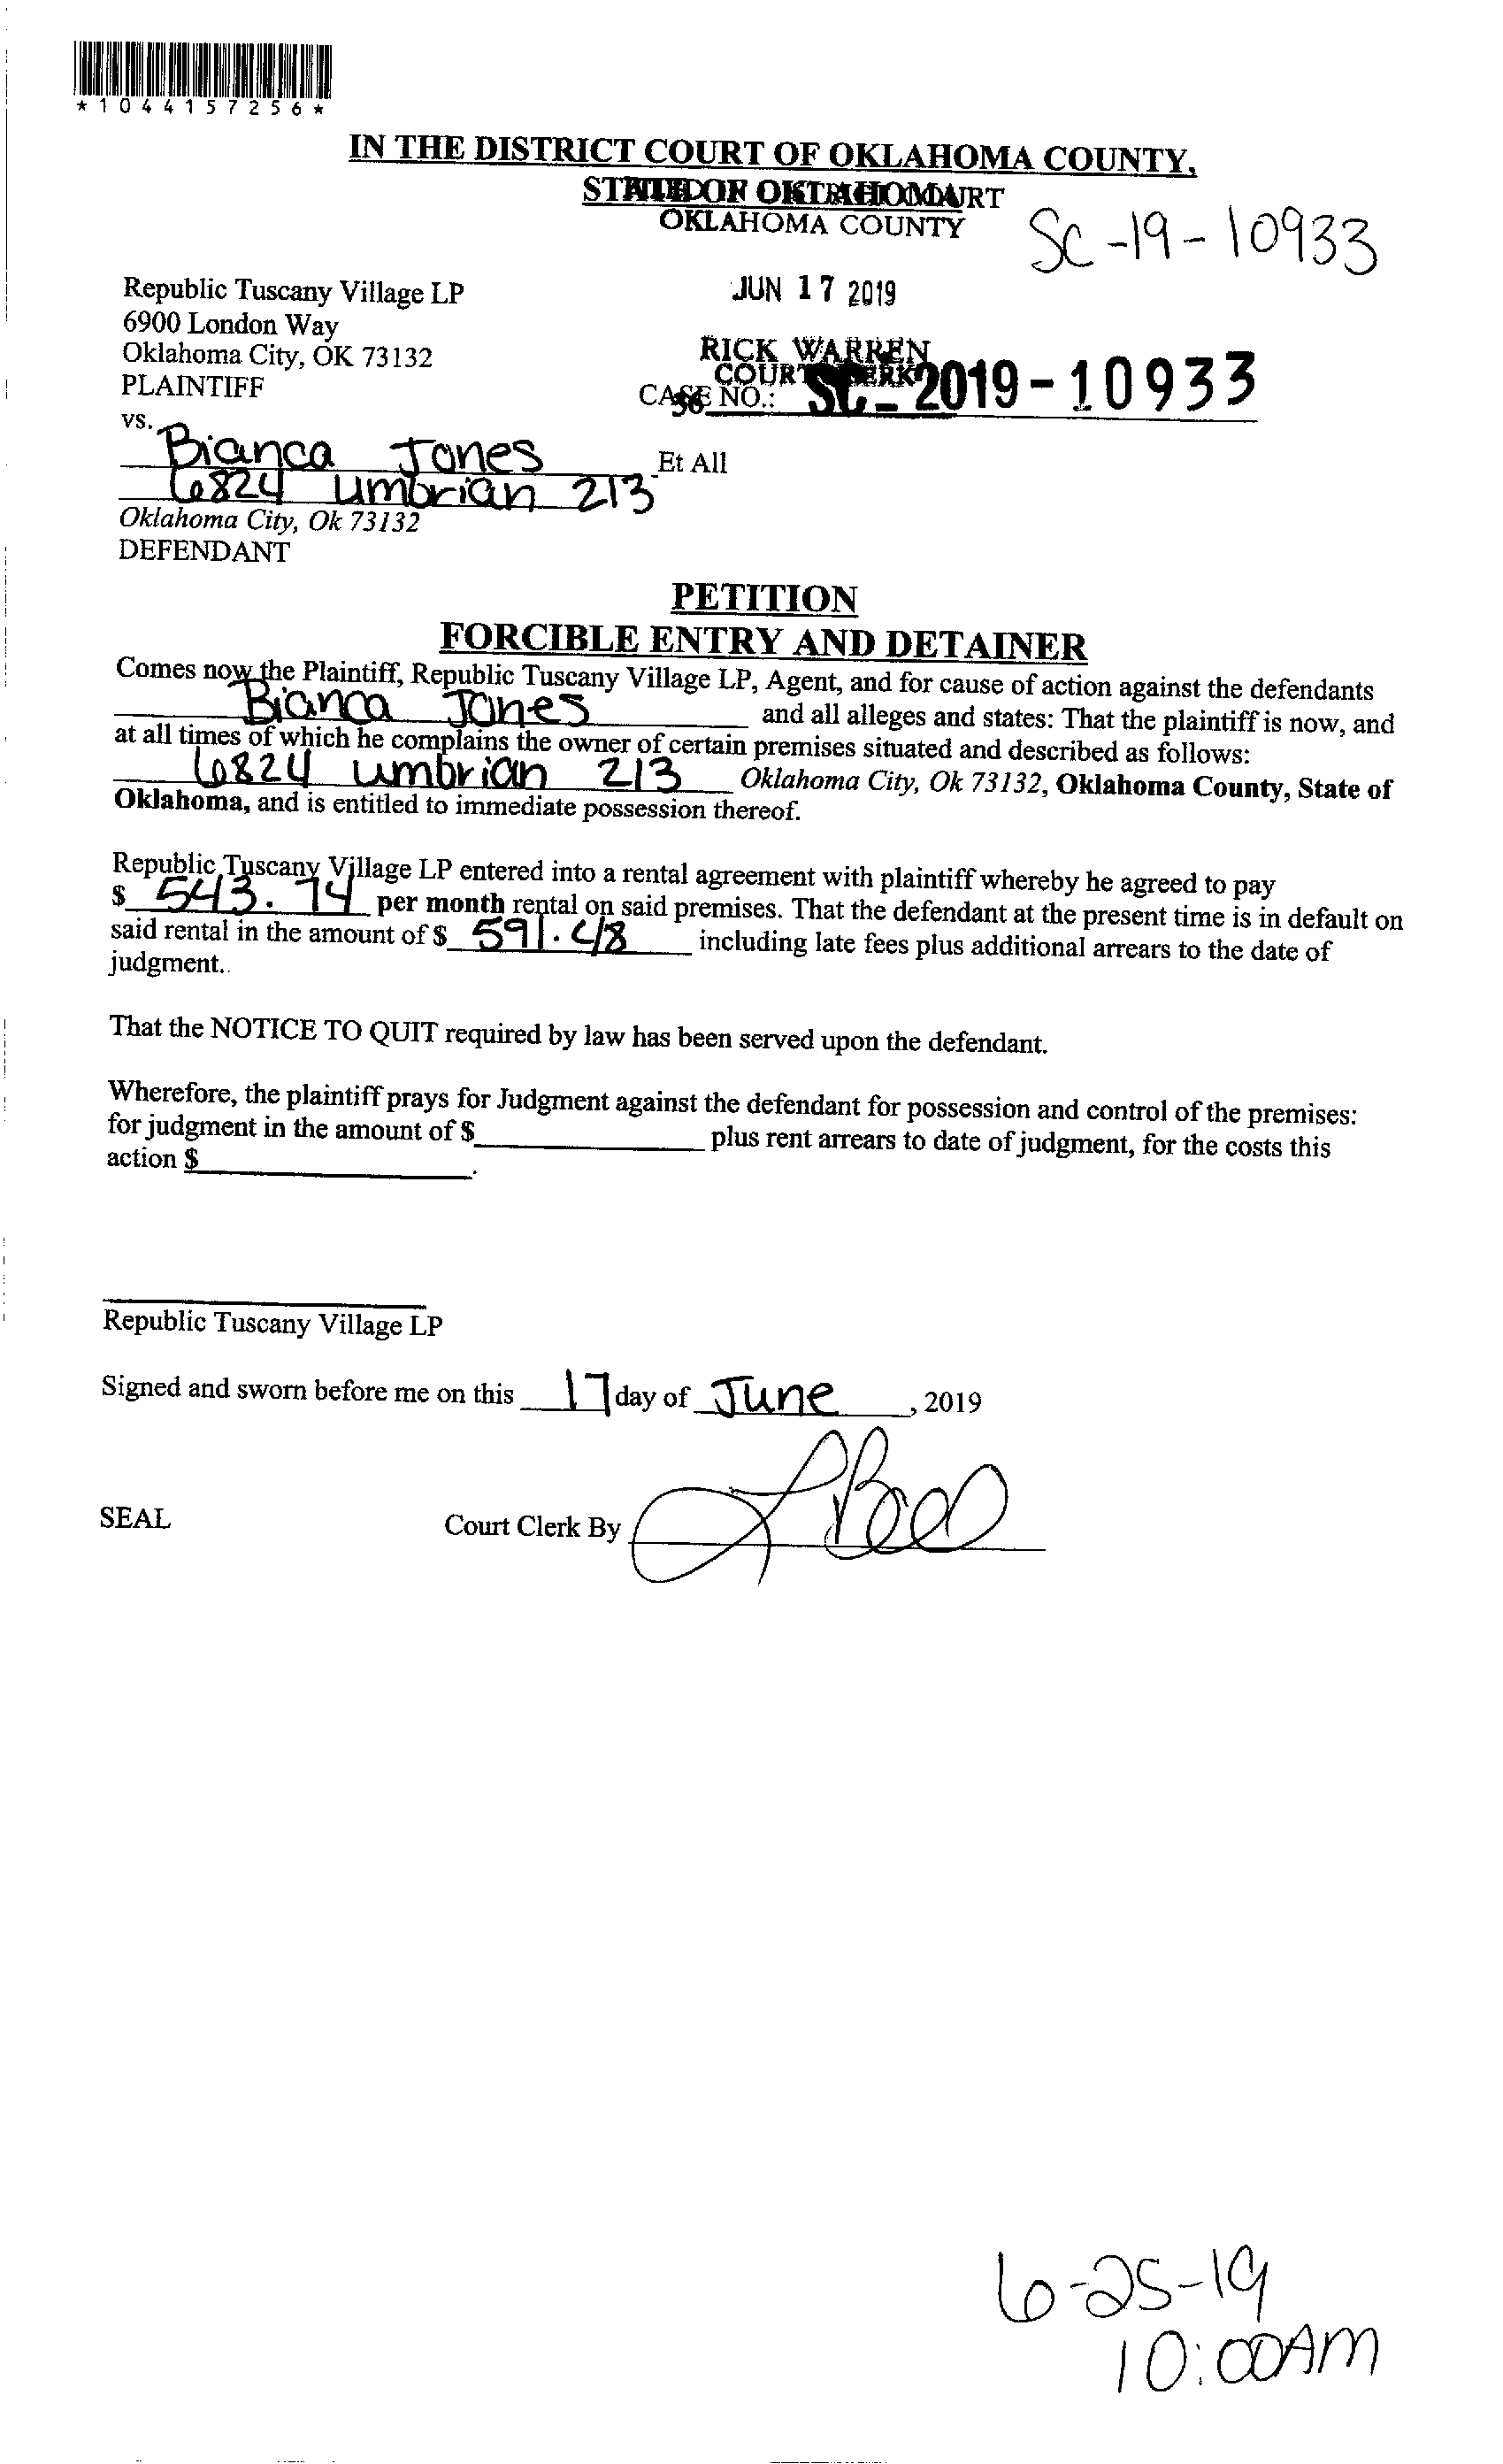 *1044157256*
IN THE DISTRICT COURT OF OKLAHOMA COUNTY,
STATE OF OKLAHOMA
OKLAHOMA COUNTY
SC-19-10933
Republic Tuscany Village LP
JUN 17 2019
6900 London Way
Oklahoma City, OK 73132
RICK WARREN
COURT CLERK
PLAINTIFF
CASE NO.: SC-2019-10933
vs.
Bianca Jones Et All
6824 Umbrian 213
Oklahoma City, Ok 73132
DEFENDANT
PETITION
FORCIBLE ENTRY AND DETAINER
Comes now the Plaintiff, Republic Tuscany Village LP, Agent, and for cause of action against the defendants
Bianca Jones and all alleges and states: That the plaintiff is now, and
at all times of which he complains the owner of certain premises situated and described as follows:
6824 Umbrian 213 Oklahoma City, Ok 73132, Oklahoma County, State of
Oklahoma, and is entitled to immediate possession thereof.
Republic Tuscany Village LP entered into a rental agreement with plaintiff whereby he agreed to pay
$ 543.74 per month rental on said premises. That the defendant at the present time is in default on
said rental in the amount of $ 591.48 including late fees plus additional arrears to the date of
judgment..
That the NOTICE TO QUIT required by law has been served upon the defendant.
Wherefore, the plaintiff prays for Judgment against the defendant for possession and control of the premises:
for judgment in the amount of $ plus rent arrears to date of judgment, for the costs this
action $ .
Republic Tuscany Village LP
Signed and sworn before me on this 17 day of June, 2019
SEAL Court Clerk By
6-25-19
10:00AM